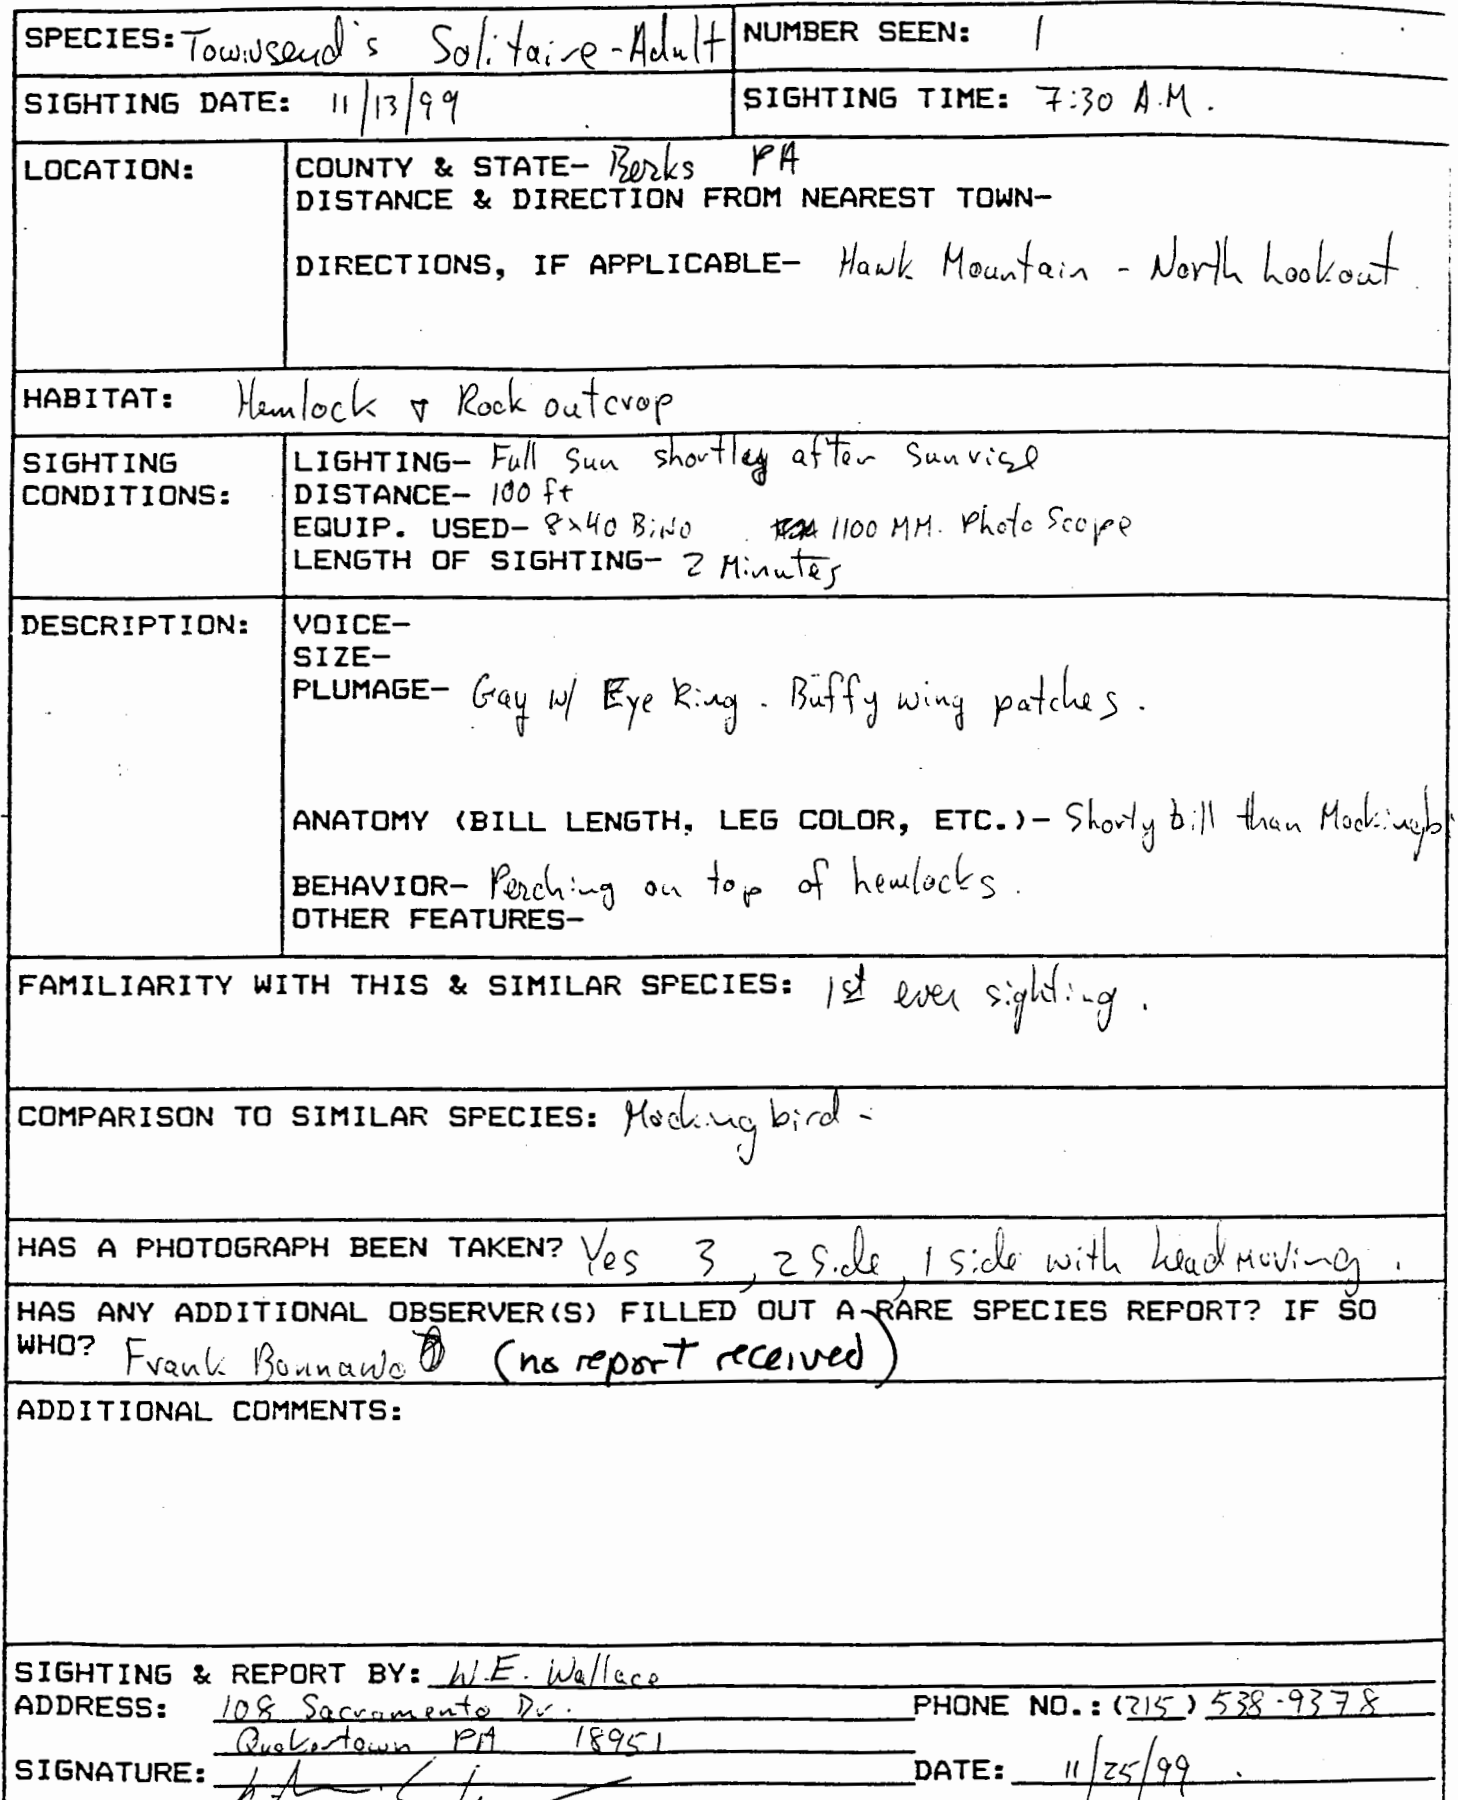 SPECIES: Townsend's Solitaire-Adult NUMBER SEEN: 1
SIGHTING DATE: 11/13/99 SIGHTING TIME: 7:30 A.M.
LOCATION: COUNTY & STATE- Berks PA
DISTANCE & DIRECTION FROM NEAREST TOWN-
DIRECTIONS, IF APPLICABLE- Hawk Mountain - North Lookout
HABITAT: Hemlock & Rock outcrop
SIGHTING CONDITIONS: LIGHTING- Full Sun shortley after Sunrise
DISTANCE- 100 ft
EQUIP. USED- 8x40 Bino 1100 MM. Photo Scope
LENGTH OF SIGHTING- 2 Minutes
DESCRIPTION: VOICE-
SIZE-
PLUMAGE- Gay w/ Eye Ring. Buffy wing patches.
ANATOMY (BILL LENGTH, LEG COLOR, ETC.)- Shorty bill than Mockingb
BEHAVIOR- Perching on top of hemlocks.
OTHER FEATURES-
FAMILIARITY WITH THIS & SIMILAR SPECIES: 1st ever sighting.
COMPARISON TO SIMILAR SPECIES: Mockingbird -
HAS A PHOTOGRAPH BEEN TAKEN? Yes 3, 2 Side, 1 side with head moving.
HAS ANY ADDITIONAL OBSERVER(S) FILLED OUT A RARE SPECIES REPORT? IF SO
WHO? Frank (no report received)
ADDITIONAL COMMENTS:
SIGHTING & REPORT BY: W.E. Wallace
ADDRESS: 108 Sacramento Dr. PHONE NO.: (215) 538-9378
Quakertown PA 18951
SIGNATURE: DATE: 11/25/99